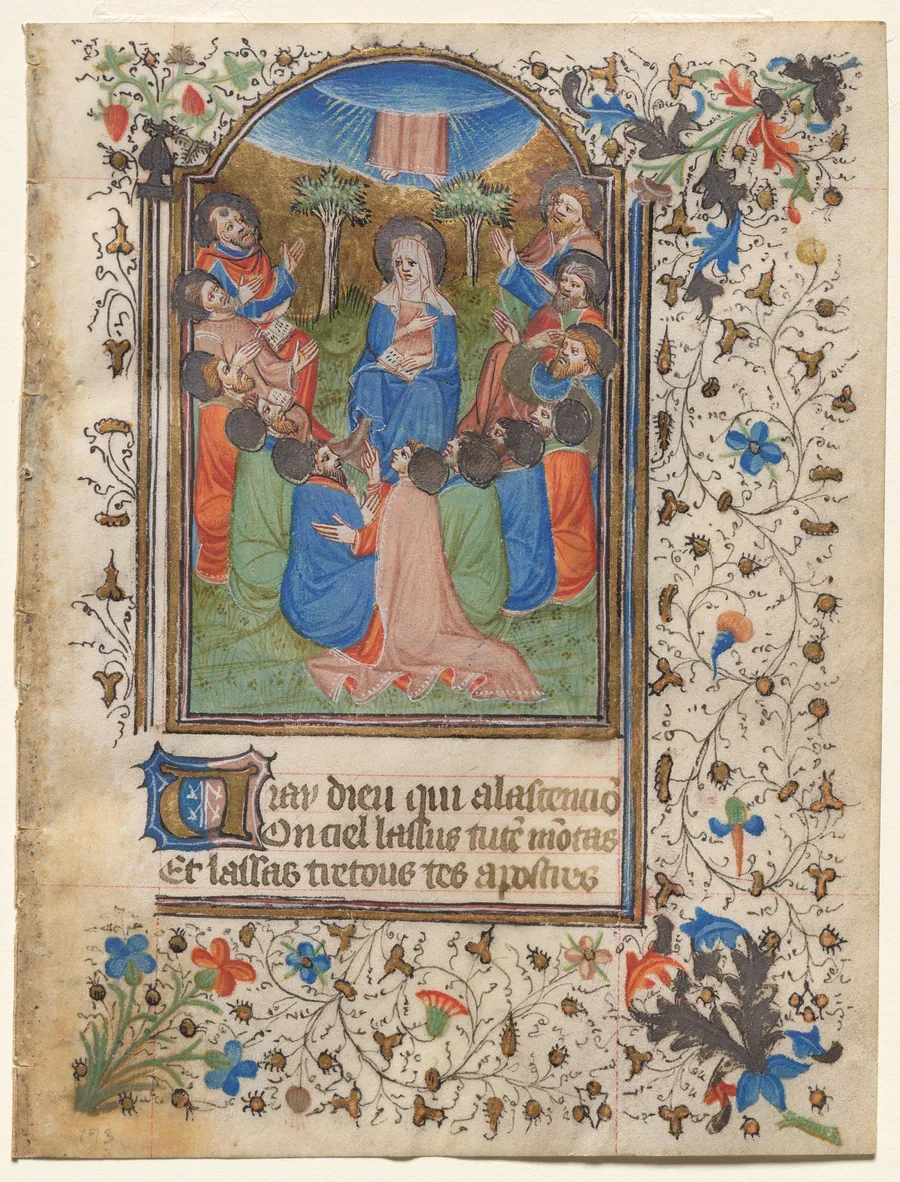 Uray dieu qui alascenciō
On ciel lassus tutē mōtas
Et lassas tretous tes apostres
153